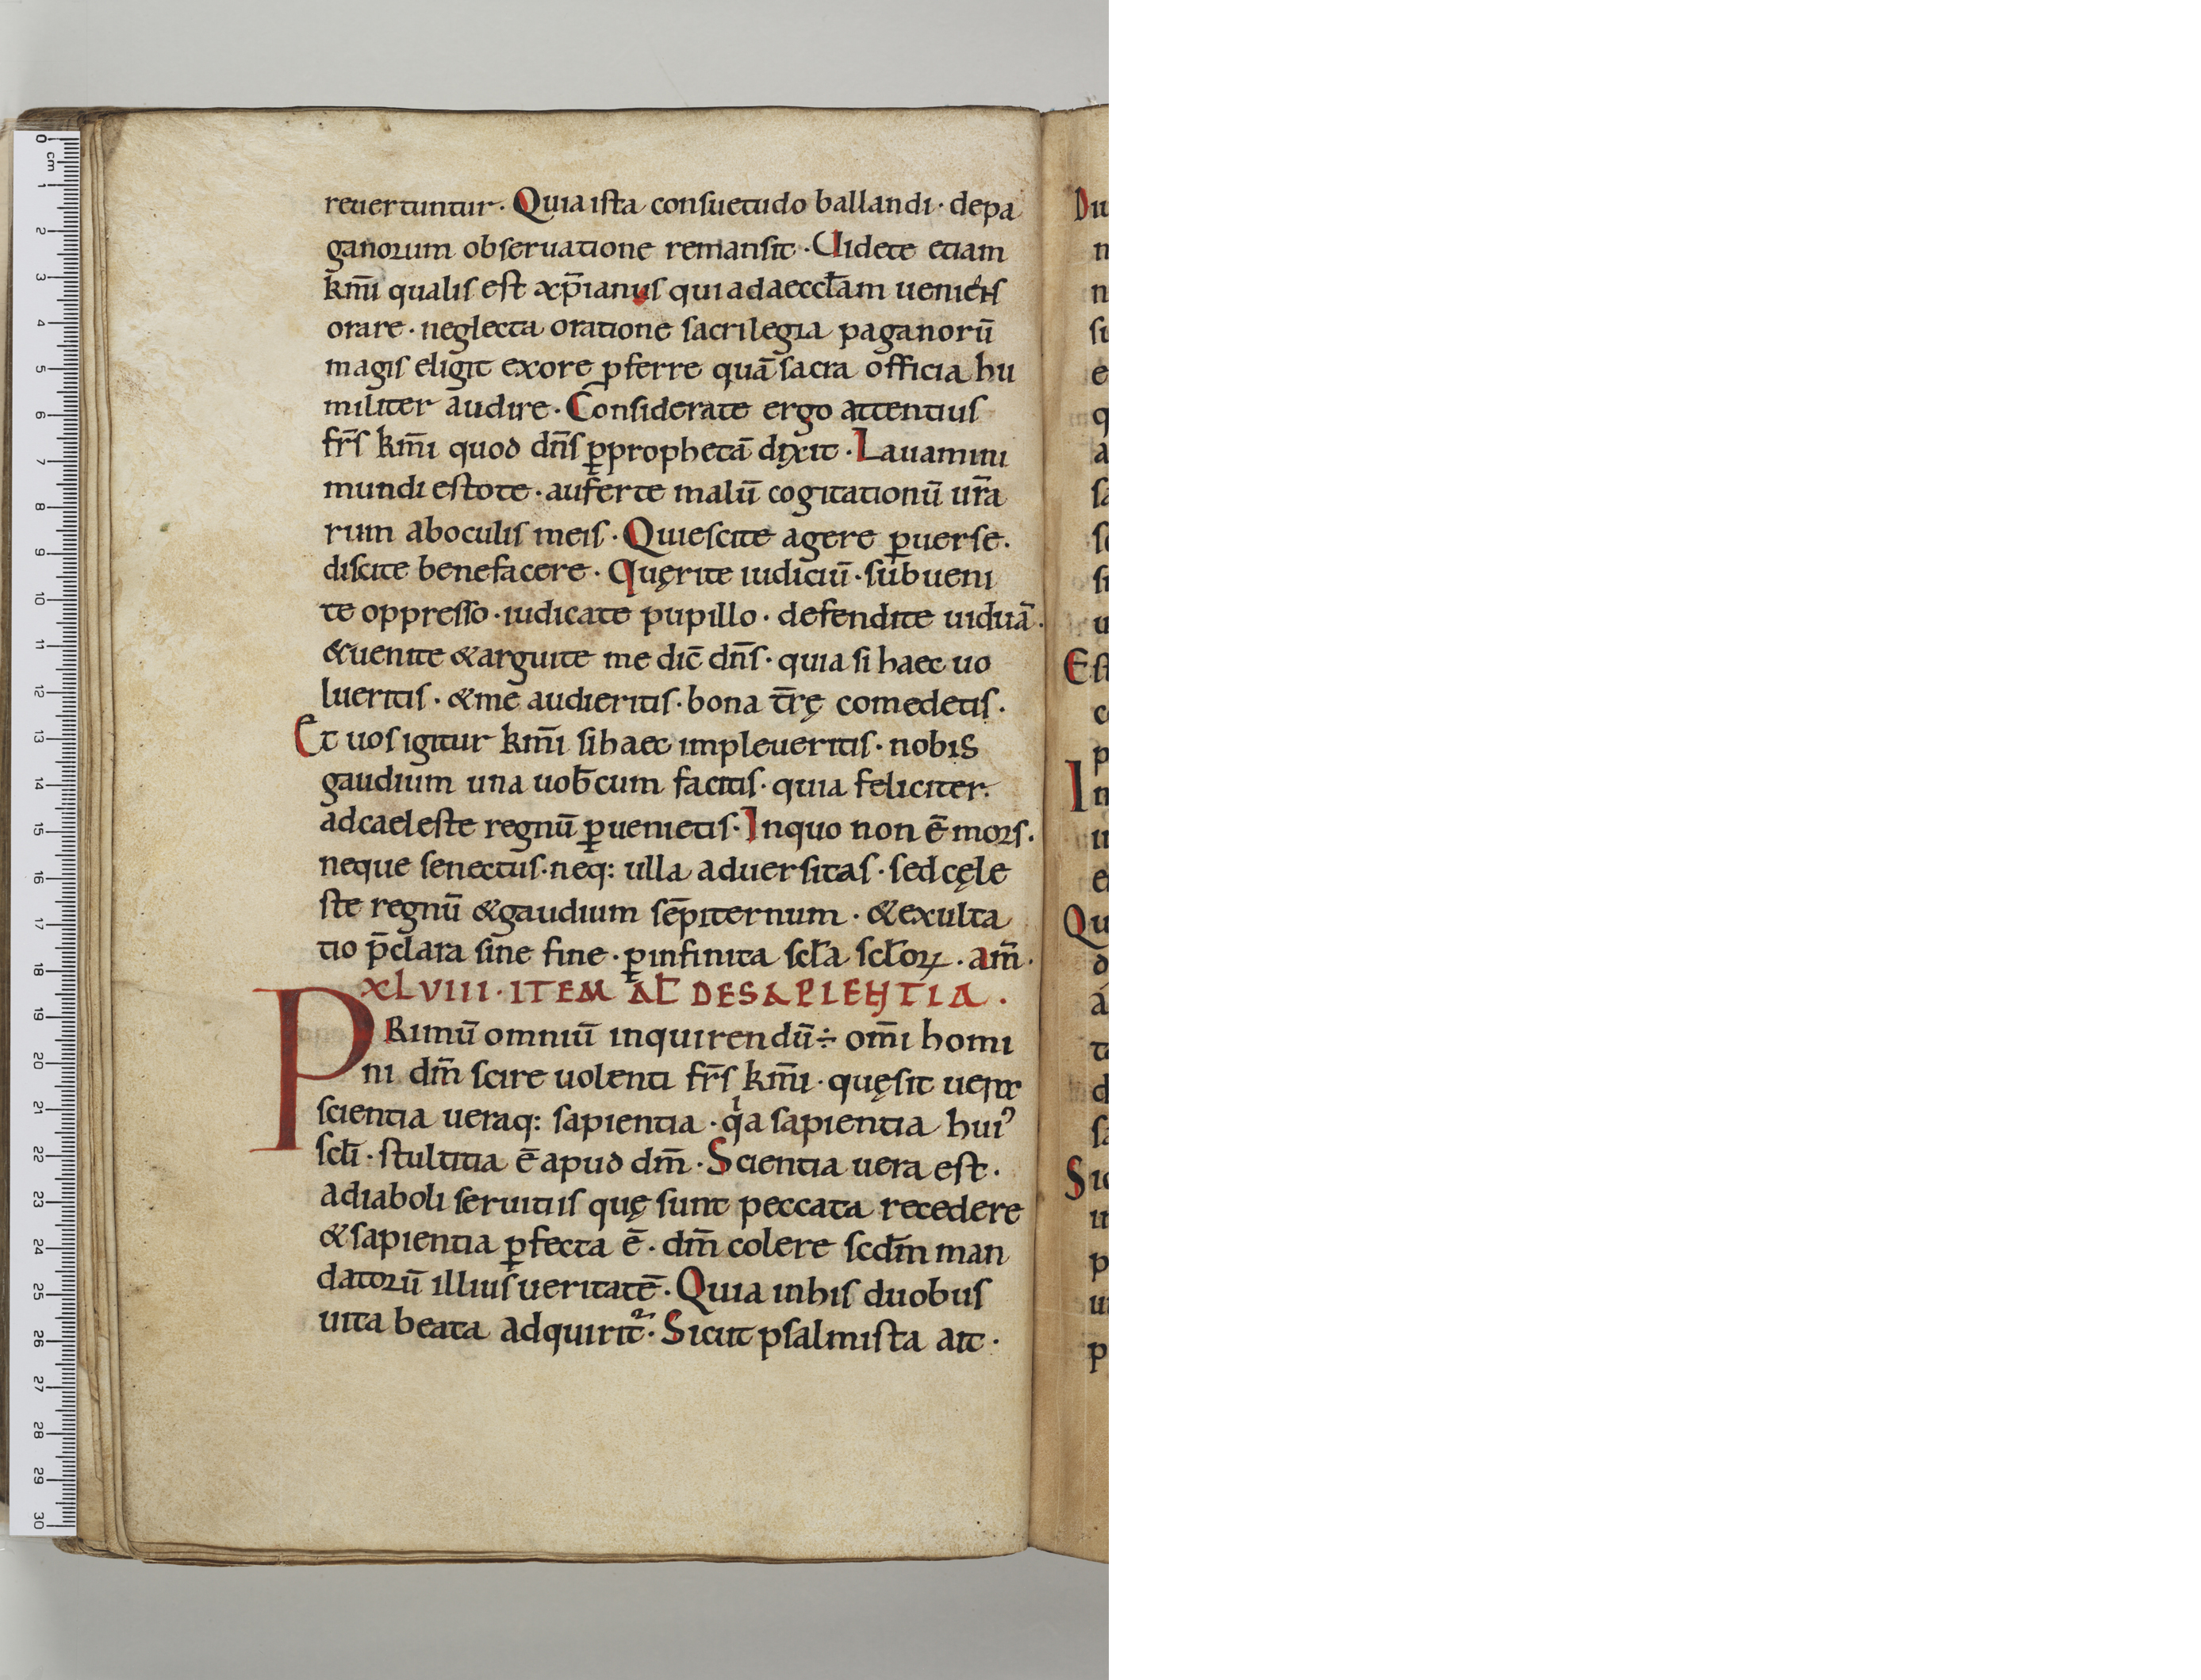 reuertuntur. Quia ista consuetudo ballandi · depa
ganorum obseruatione remansit · Uidete etiam
km̄i qualis est xp̄ianus qui adaeccl̄am ueniens
orare · neglecta oratione sacrilegia paganorū
magis eligit exore ꝑferre quā sacra officia hu
militer audire · Considerate ergo attentius
fr̄s km̄i quod dn̄s ꝑprophetā dixit · Lauamini
mundi estote · auferte malū cogitationū ur̄a
rum aboculis meis · Quiescite agere ꝑuerse.
discite benefacere · Quęrite iudiciū · subueni
te oppresso · iudicate pupillo · defendite uiduā.
&uenite &arguite me dic̄ dn̄s · quia si haec uo
lueritis · &me audieritis · bona t̄rę comedetis.
Et uos igitur km̄i sihaec impleueritis · nobis
gaudium una uob̄cum facitis · quia feliciter.
adcaeleste regnū ꝑuenietis · Inquo non ē mors.
neque senectus · neq: ulla aduersitas · sedcęle
ste regnū &gaudium sēpiternum · &exulta
tio p̄clara sine fine · ꝑinfinita scl̄a scl̄oꝝ · am̄.
XLVIII · ITEM AL̄ DESAPIENTIA.
PRimū omniū inquirendū÷ om̄i homi
ni dm̄ scire uolenti fr̄s km̄i · quęsit uera
scientia ueraq: sapientia · qⁱa sapientia huiꝰ
scl̄i · stultitia ē apud dm̄ · Scientia uera est.
adiaboli seruitiis quę sunt peccata recedere
&sapientia ꝑfecta ē · dm̄ colere scdm̄ man
datorū illius ueritatē · Quia inhis duobus
uita beata adquirit᷑ · Sicut psalmista ait ·